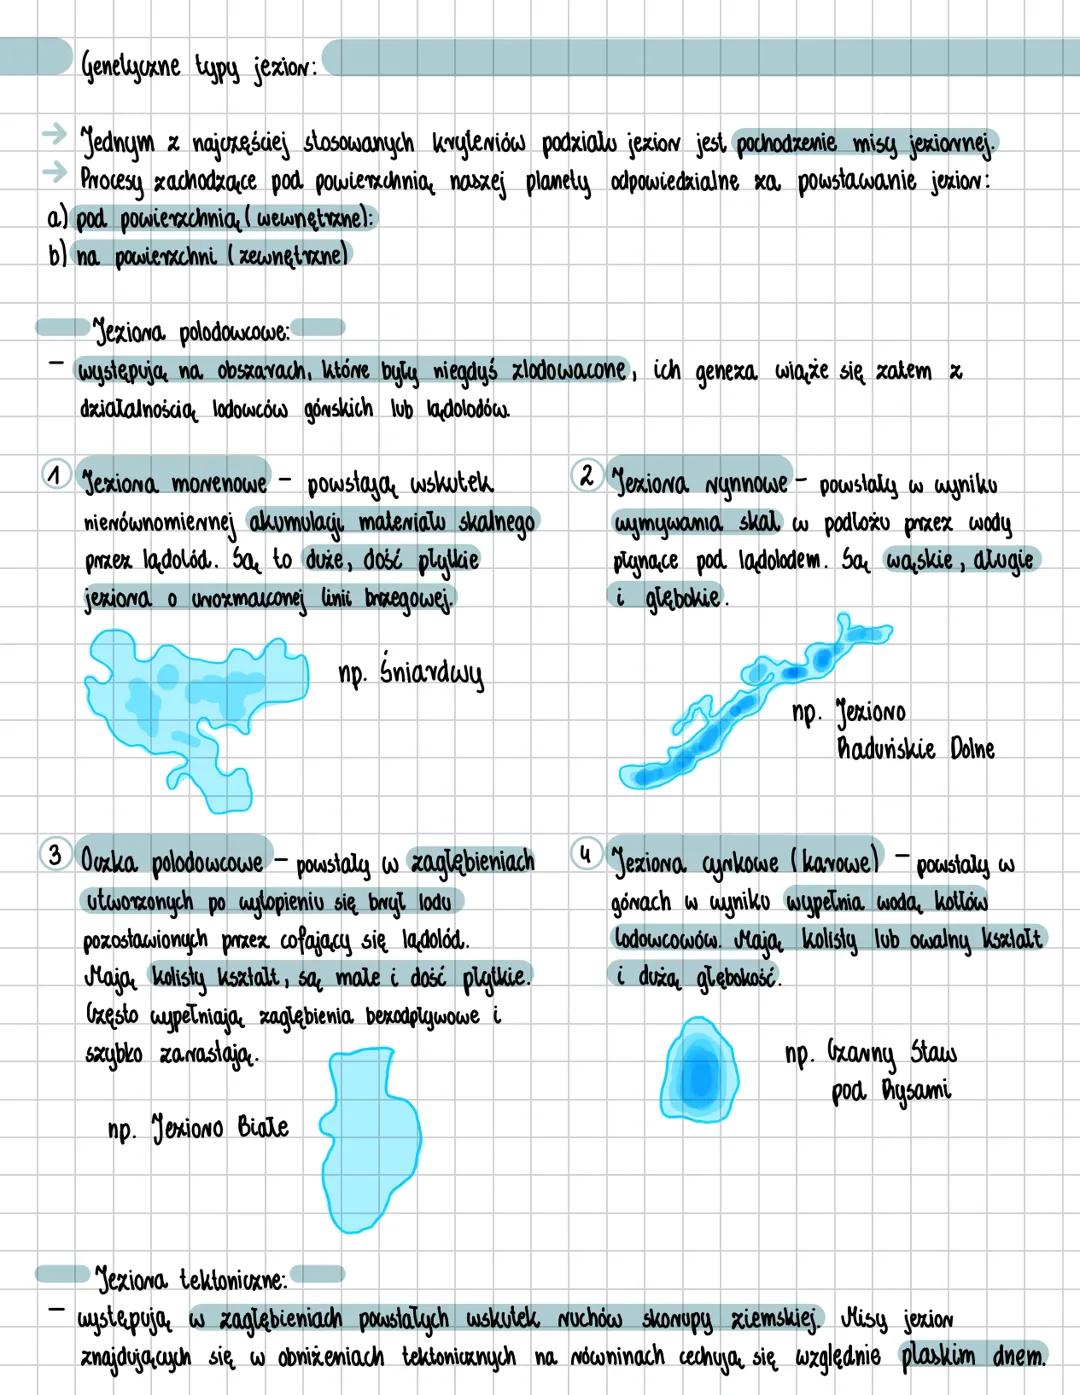 Genetyczne typy jezior:
→ Jednym z najczęściej stosowanych kryteriów podziału jezior jest pochodzenie misy jeziornej.
→ Procesy zachodzące pod powierzchnią naszej planety odpowiedzialne za powstawanie jezior:
a) pod powierzchnią (wewnętrzne):
b) na powierzchni (zewnętrzne)
Jeziora polodowcowe:
– występują na obszarach, które były niegdyś zlodowacone, ich geneza wiąże się zatem z
działalnością lodowców górskich lub lądolodów.
1 Jeziora morenowe – powstają wskutek
nierównomiernej akumulacji materiału skalnego
przez lądolód. Są to duże, dość płytkie
jeziora o urozmaiconej linii brzegowej.
np. Śniardwy
2 Jeziora rynnowe – powstały w wyniku
wymywania skał w podłożu przez wody
płynące pod lądolodem. Są wąskie, długie
i głębokie.
np. Jezioro
Raduńskie Dolne
3 Oczka polodowcowe – powstały w zagłębieniach
utworzonych po wytopieniu się brył lodu
pozostawionych przez cofający się lądolód.
Mają kolisty kształt, są małe i dość płytkie.
Często wypełniają zagłębienia bezodpływowe i
szybko zarastają.
np. Jezioro Białe
4 Jeziora cyrkowe (karowe) – powstały w
górach w wyniku wypełnia wodą kotłów
lodowcowów. Mają kolisty lub owalny kształt
i dużą głębokość.
np. Czarny Staw
pod Rysami
Jeziora tektoniczne:
– występują w zagłębieniach powstałych wskutek ruchów skorupy ziemskiej. Misy jezior
znajdujących się w obniżeniach tektonicznych na równinach cechują się względnie płaskim dnem.